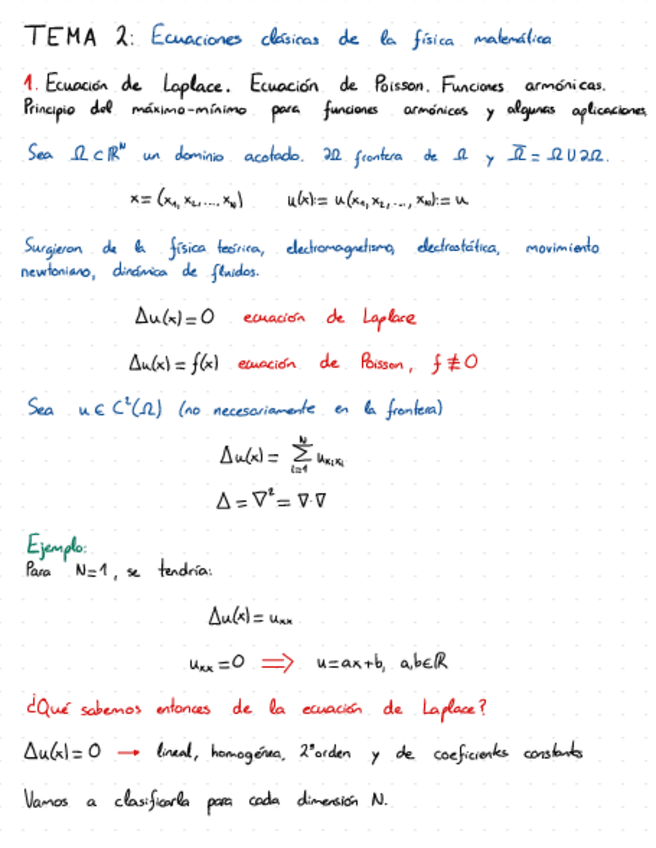 TEMA 2: Ecuaciones clásicas de la física matemática
1. Ecuación de Laplace. Ecuación de Poisson. Funciones armónicas.
Principio del máximo-mínimo para funciones armónicas y algunas aplicaciones
Sea Ω⊂ℝᴺ un dominio acotado. ∂Ω frontera de Ω y Ω̅ = Ω∪∂Ω.
x=(x₁, x₂,..., x_N) u(x):= u(x₁, x₂,..., x_N):= u
Surgieron de la física teórica, electromagnetismo, electrostática, movimiento
newtoniano, dinámica de fluidos.
Δu(x)=0 ecuación de Laplace
Δu(x)=f(x) ecuación de Poisson, f≢0
Sea u∈C²(Ω) (no necesariamente en la frontera)
Δu(x)= ∑_{i=1}^{N} u_{x_i x_i}
Δ=∇²=∇·∇
Ejemplo:
Para N=1, se tendría:
Δu(x)=u_{xx}
u_{xx}=0 ⟹ u=ax+b, a,b∈ℝ
¿Qué sabemos entonces de la ecuación de Laplace?
Δu(x)=0 → lineal, homogénea, 2ºorden y de coeficientes constants
Vamos a clasificarla para cada dimensión N.